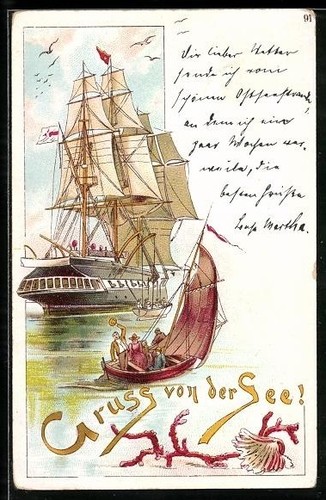 91
Dir lieber Vetter
sende ich vom
schönen Ostseestrande,
an dem ich ein
paar Wochen ver-
weile, die
besten Grüße
Martha.
Gruss von der See!